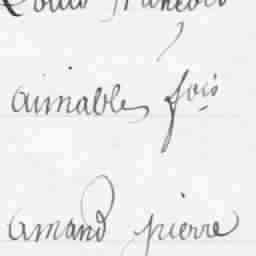 Louis françois
aimable fois
amand pierre